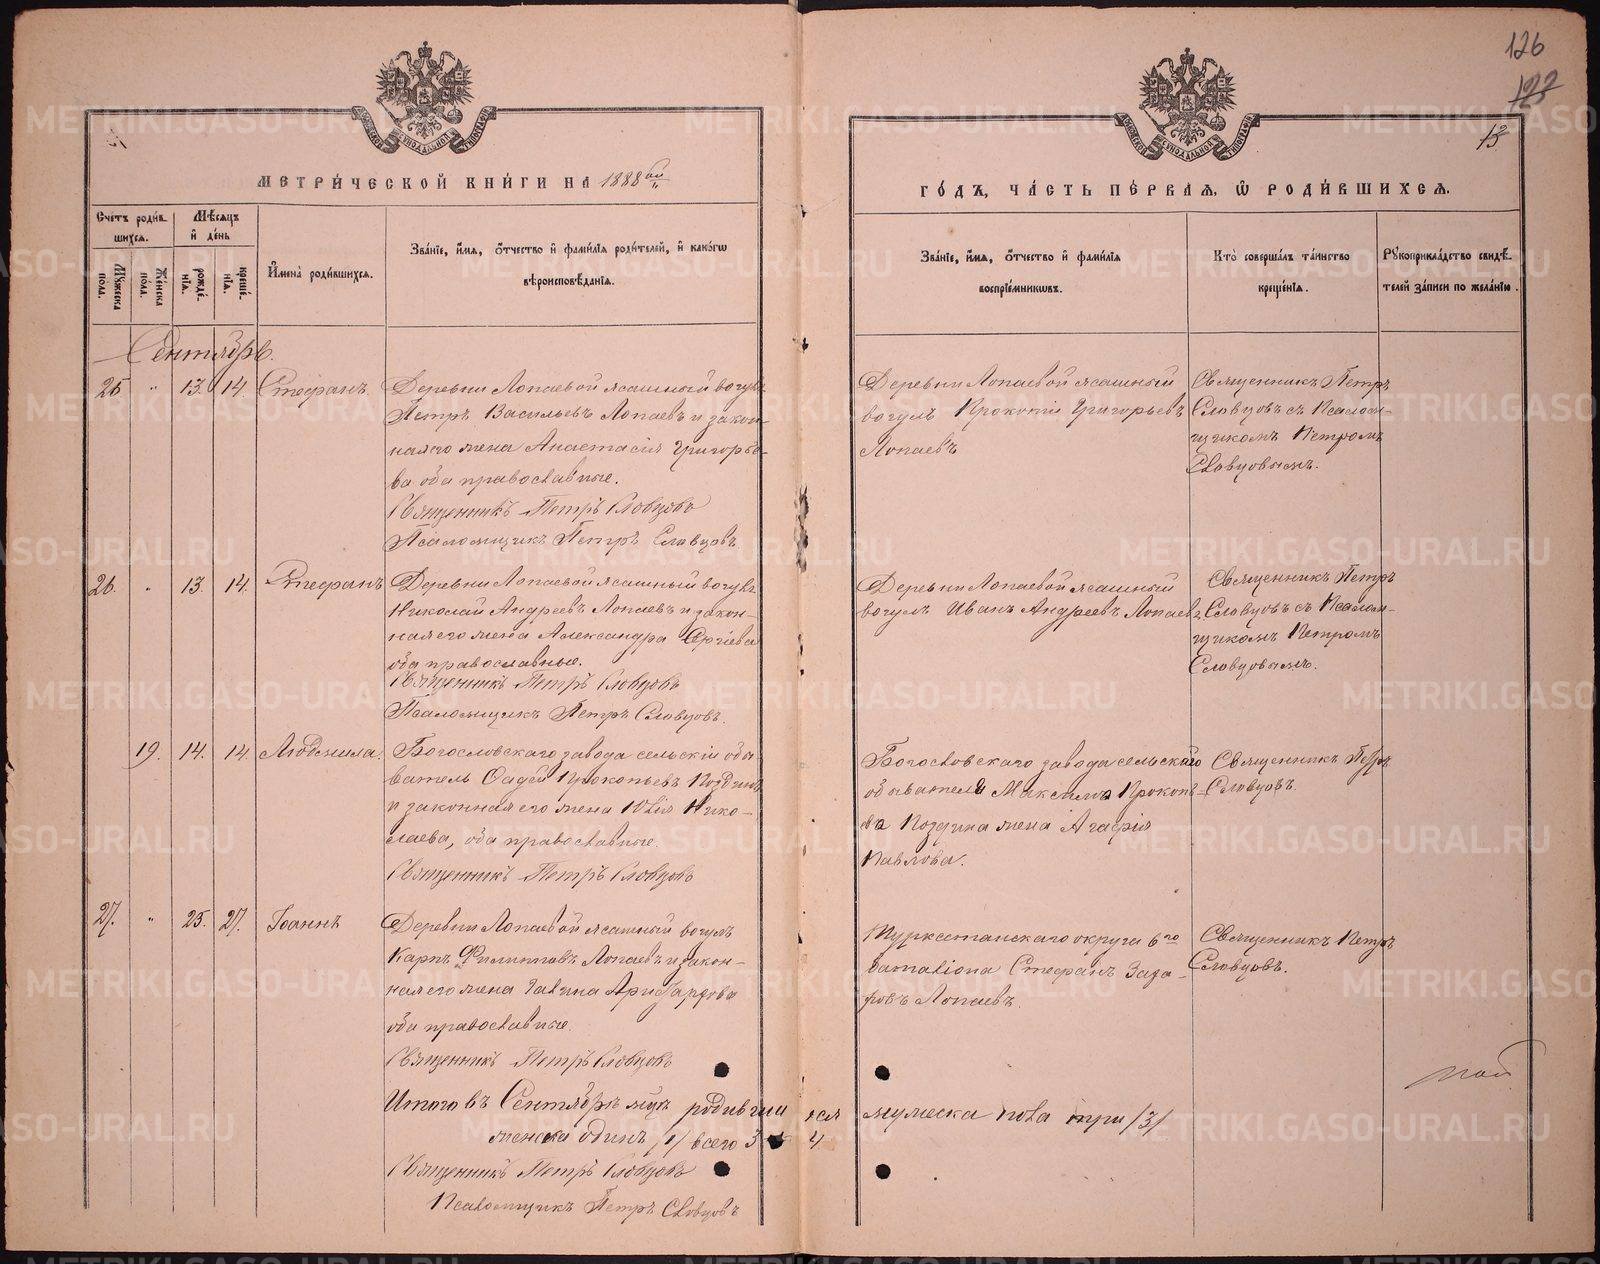 126
123
13
МЕТРИ́ЧЕСКОЙ КНИ́ГИ НА 1888 ой
ГО́ДЪ, ЧА́СТЬ ПЕ́РВАЯ, Ѡ РОДИ́ВШИХСЯ.
Сче́тъ роди́в-
шихся.
Мѣ́сяцъ
и де́нь
Му́жеска
пола.
Же́нска
пола.
рожде́-
нїя.
креще́-
нїя.
И́мена роди́вшихся.
Зва́нїе, и́мя, о́тчество и фами́лїя роди́телей, и како́гѡ
вѣроисповѣ́данїя.
Зва́нїе, и́мя, о́тчество и фами́лїя
воспрїе́мникѡвъ.
Кто̀ соверша́лъ та́инство
креще́нїя.
Рукоприкла́дство свидѣ́-
телей за́писи по жела́нїю.
Сентябрь.
25 " 13. 14. Стефанъ
Деревни Лопаевой ясашный вогулъ
Петръ Васильевъ Лопаевъ и закон-
ная его жена Анастасія Григорье-
ва оба православные.
Священникъ Петръ Словцовъ
Псаломщикъ Петръ Словцовъ
Деревни Лопаевой ясашный
вогулъ Прокопій Григорьевъ
Лопаевъ
Священникъ Петръ
Словцовъ съ Псалом-
щикомъ Петромъ
Словцовымъ.
26. " 13. 14. Стефанъ
Деревни Лопаевой ясашный вогулъ
Николай Андреевъ Лопаевъ и закон-
ная его жена Александра Сергіева
оба православные.
Священникъ Петръ Словцовъ
Псаломщикъ Петръ Словцовъ.
Деревни Лопаевой ясашный
вогулъ Иванъ Андреевъ Лопаевъ
Священникъ Петръ
Словцовъ съ Псалом-
щикомъ Петромъ
Словцовымъ.
19. 14. 14. Людмила.
Богословскаго завода сельскій обы-
ватель Фадей Прокопьевъ Поздинъ
и законная его жена Юлія Нико-
лаева, оба православные.
Священникъ Петръ Словцовъ
Богословскаго завода сельскаго
обывателя Максима Прокопь-
ева Поздина жена Агафія
Павлова.
Священникъ Петръ
Словцовъ.
27. " 25. 27. Іоаннъ
Деревни Лопаевой ясашный вогулъ
Карпъ Филипповъ Лопаевъ и закон-
ная его жена Галина
оба православные.
Священникъ Петръ Словцовъ
Туркестанскаго округа 6го
баталіона Стефанъ Заха-
ровъ Лопаевъ.
Священникъ Петръ
Словцовъ.
Итого въ Сентябрѣ мцѣ родившихся мужеска пола три /3/
женска одинъ /1/ всего 4
Священникъ Петръ Словцовъ
Псаломщикъ Петръ Словцовъ
METRIKI.GASO-URAL.RU